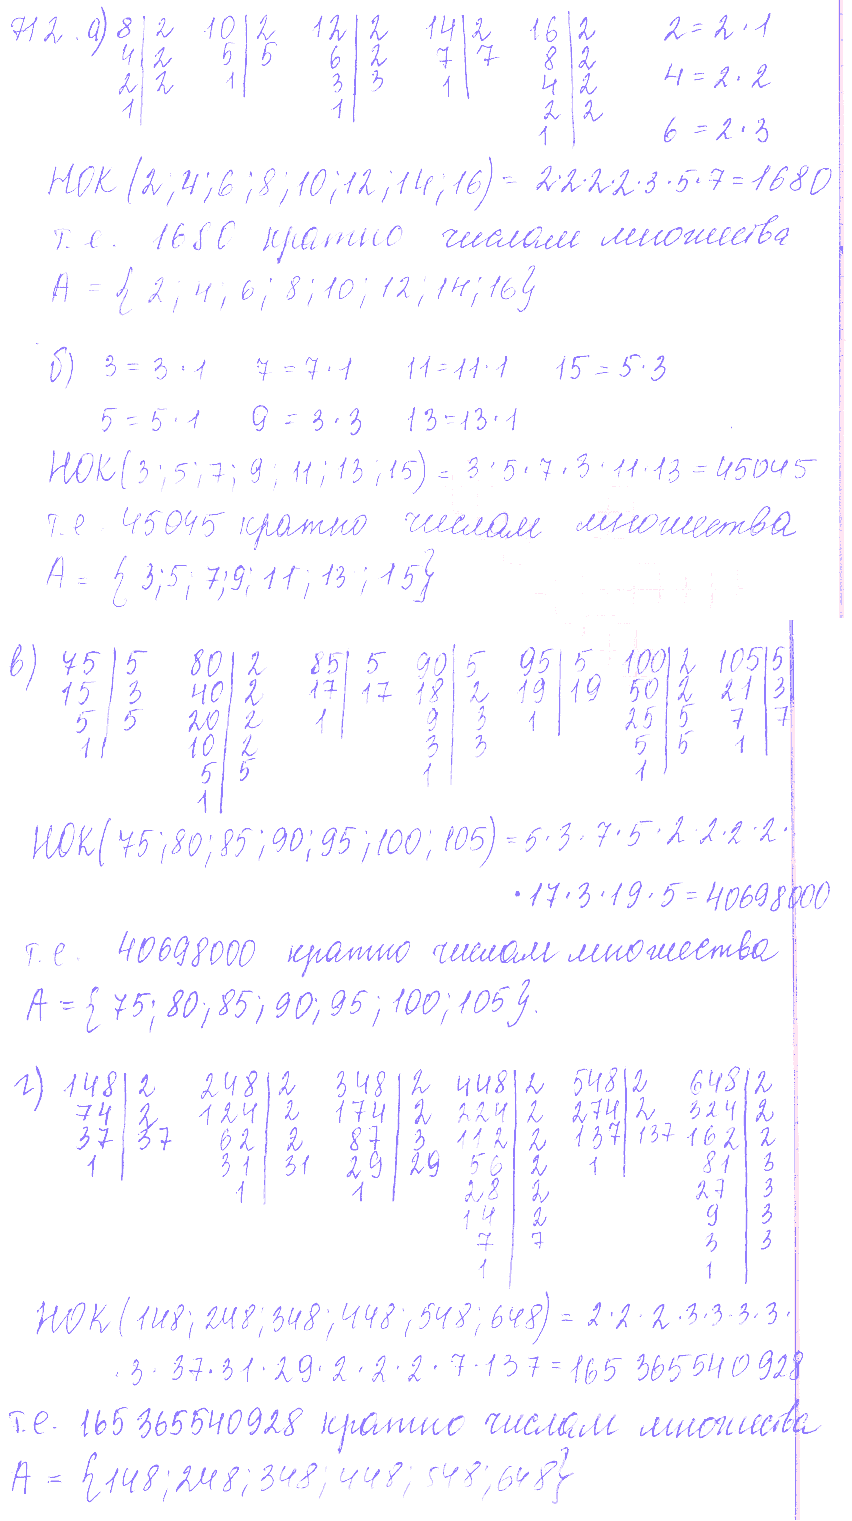 712. а) 8 | 2   10 | 2   12 | 2   14 | 2   16 | 2   2 = 2 · 1
4 | 2   5 | 5   6 | 2   7 | 7   8 | 2
2 | 2   1   3 | 3   1   4 | 2   4 = 2 · 2
1   1   2 | 2
1   6 = 2 · 3
НОК (2; 4; 6; 8; 10; 12; 14; 16) = 2·2·2·2·3·5·7 = 1680
т.е. 1680 кратно числам множества
A = {2; 4; 6; 8; 10; 12; 14; 16}
б) 3 = 3 · 1   7 = 7 · 1   11 = 11 · 1   15 = 5 · 3
5 = 5 · 1   9 = 3 · 3   13 = 13 · 1
НОК (3; 5; 7; 9; 11; 13; 15) = 3 · 5 · 7 · 3 · 11 · 13 = 45045
т.е. 45045 кратно числам множества
A = {3; 5; 7; 9; 11; 13; 15}
в) 75 | 5   80 | 2   85 | 5   90 | 5   95 | 5   100 | 2   105 | 5
15 | 3   40 | 2   17 | 17   18 | 2   19 | 19   50 | 2   21 | 3
5 | 5   20 | 2   1   9 | 3   1   25 | 5   7 | 7
1   10 | 2   3 | 3   5 | 5   1
5 | 5   1   1
1
НОК (75; 80; 85; 90; 95; 100; 105) = 5 · 3 · 7 · 5 · 2 · 2 · 2 · 2 ·
· 17 · 3 · 19 · 5 = 40698000
т.е. 40698000 кратно числам множества
A = {75; 80; 85; 90; 95; 100; 105}.
г) 148 | 2   248 | 2   348 | 2   448 | 2   548 | 2   648 | 2
74 | 2   124 | 2   174 | 2   224 | 2   274 | 2   324 | 2
37 | 37   62 | 2   87 | 3   112 | 2   137 | 137   162 | 2
1   31 | 31   29 | 29   56 | 2   1   81 | 3
1   1   28 | 2   27 | 3
14 | 2   9 | 3
7 | 7   3 | 3
1   1
НОК (148; 248; 348; 448; 548; 648) = 2 · 2 · 2 · 3 · 3 · 3 · 3 ·
· 3 · 37 · 31 · 29 · 2 · 2 · 2 · 7 · 137 = 165 365540928
т.е. 165 365540928 кратно числам множества
A = {148; 248; 348; 448; 548; 648}